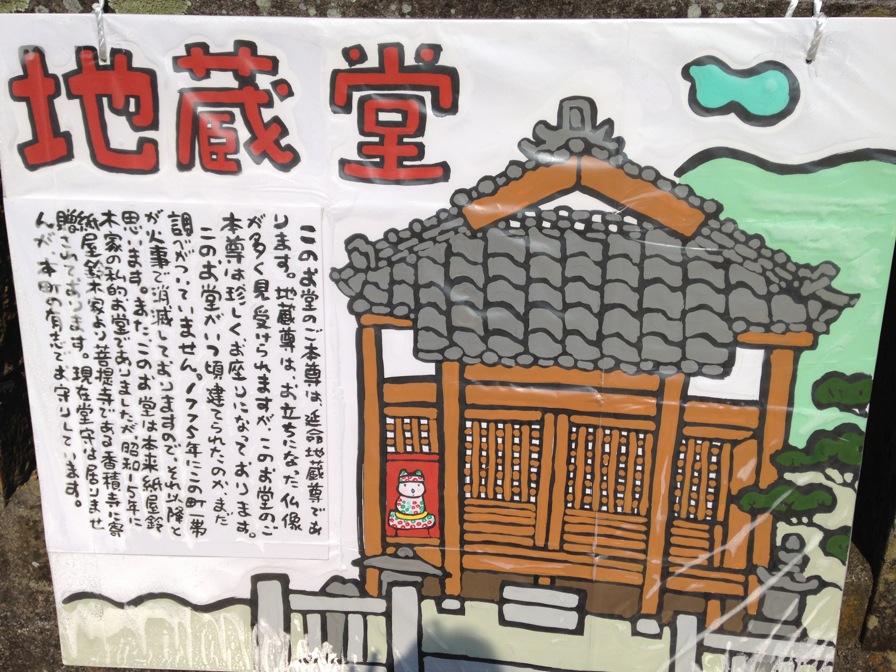 地蔵堂
このお堂のご本尊は、延命地蔵尊であ
ります。地蔵尊は、お立ちになった仏像
が多く見受けられますがこのお堂のご
本尊は珍しくお座りになっております。
このお堂がいつ頃建てられたのか、まだ
調がついていません。1775年にこの町一帯
が火事で消滅しておりますので、それ以降と
思います。またこのお堂は本来紙屋鈴
木家の私的お堂でありましたが、昭和15年に
紙屋鈴木家より菩提寺である香積寺に寄
贈されております。現在堂守は居りませ
んが、本町の有志でお守りしています。